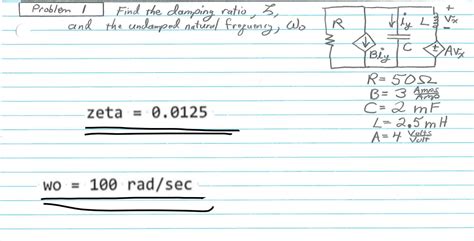 Problem 1 Find the damping ratio, ζ,
and the undamped natural frequency, ω₀
R
Biy
iy
C
L
+
Vx
-
+
-
AVx
R = 50Ω
B = 3 Amps/Amp
C = 2 mF
L = 2.5 mH
A = 4 Volts/Volt
zeta = 0.0125
wo = 100 rad/sec